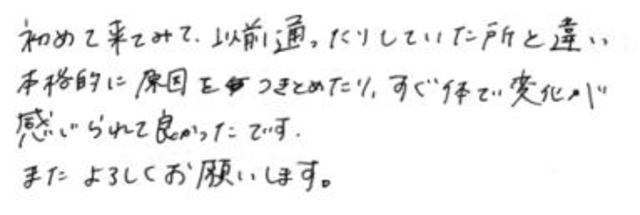 初めて来てみて、以前通ったりしていた所と違い
本格的に原因をつきとめたり、すぐ体で変化が
感じられて良かったです.
またよろしくお願いします。